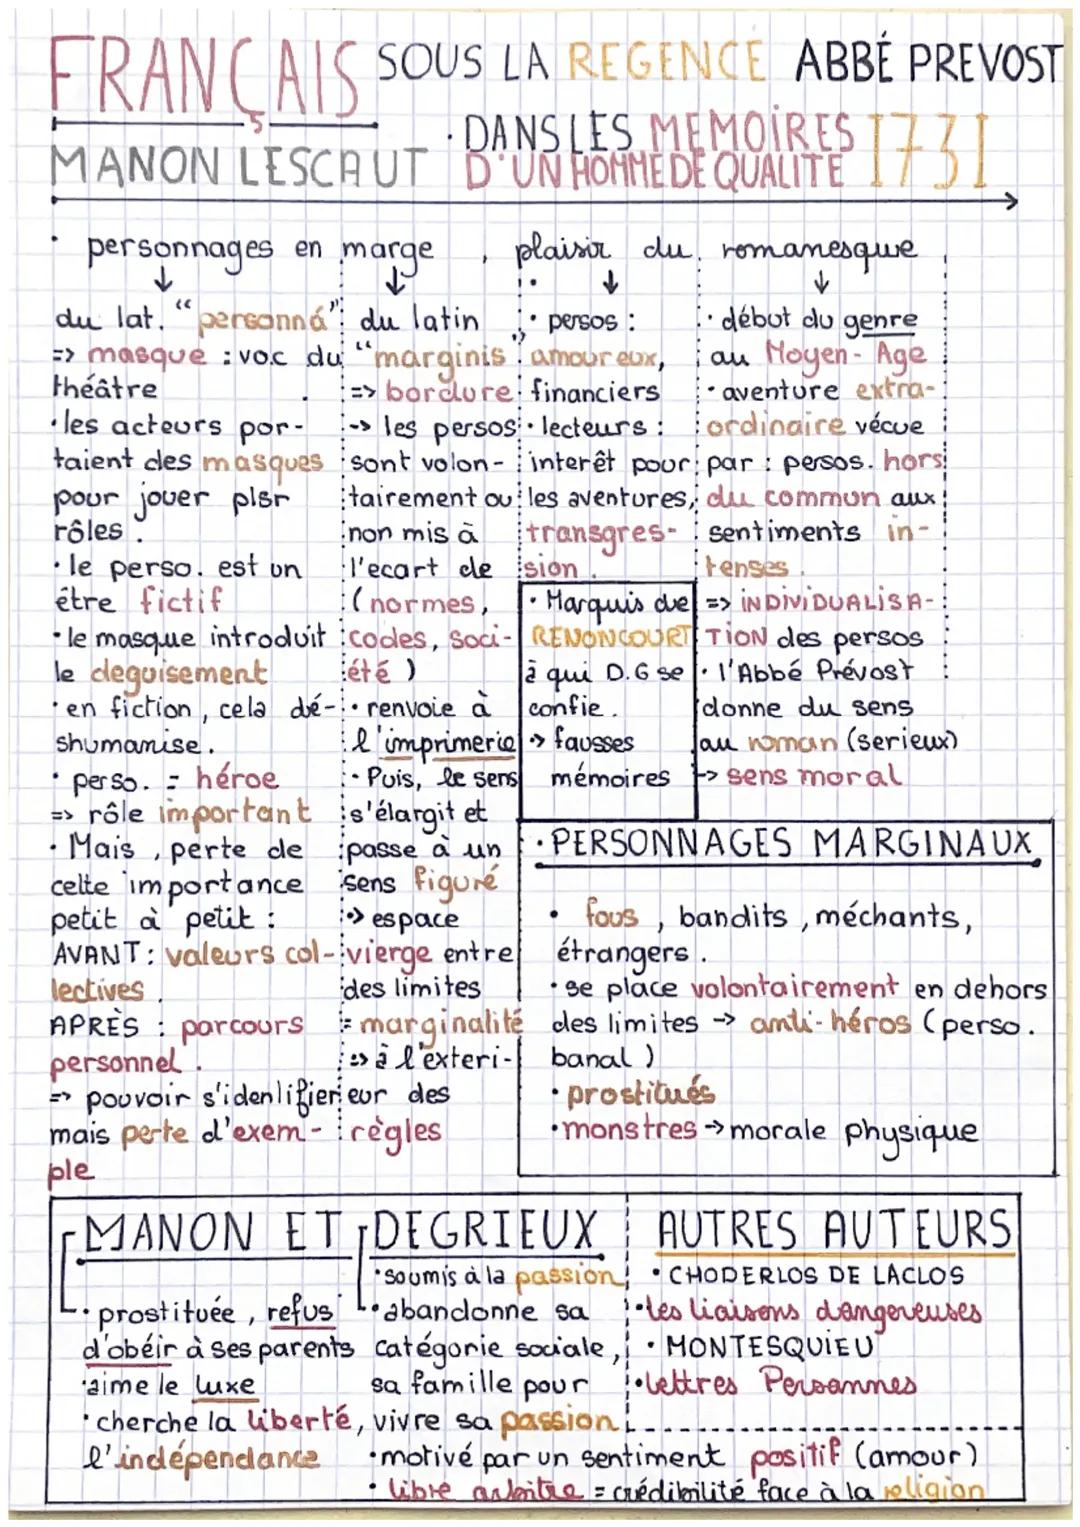 FRANÇAIS SOUS LA REGENCE ABBÉ PREVOST
MANON LESCAUT
· DANS LES MEMOIRES
D'UN HOMME DE QUALITE
1731
· personnages en marge, plaisir du romanesque
du lat. "personná"
=> masque : voc du
théâtre
· les acteurs por-
taient des masques
pour jouer plsr
rôles.
· le perso. est un
être fictif
· le masque introduit
le deguisement
· en fiction, cela dé-
shumanise.
· perso. = héroe
=> rôle important
· Mais, perte de
cette importance
petit à petit :
AVANT : valeurs col-
lectives.
APRÈS : parcours
personnel.
=> pouvoir s'identifier
mais perte d'exem-
ple
du latin
"marginis"
=> bordure
-> les persos
sont volon-
tairement ou
non mis à
l'ecart de
(normes,
codes, soci-
été)
· renvoie à
l'imprimerie
· Puis, le sens
s'élargit et
passe à un
sens figuré
-> espace
vierge entre
des limites
= marginalité
=> à l'exteri-
eur des
règles
· persos :
amoureux,
financiers
· lecteurs :
interêt pour
les aventures,
transgres-
sion.
· Marquis de
RENONCOURT
à qui D.G se
confie.
-> fausses
mémoires
· début du genre
au Moyen-Age
· aventure extra-
ordinaire vécue
par : persos. hors
du commun aux
sentiments in-
tenses.
=> INDIVIDUALISA-
TION des persos
· l'Abbé Prévost
donne du sens
au roman (serieux)
-> sens moral
· PERSONNAGES MARGINAUX
· fous, bandits, méchants,
étrangers.
· se place volontairement en dehors
des limites -> anti-héros (perso.
banal)
· prostitués
· monstres -> morale physique
MANON ET DEGRIEUX
· prostituée, refus
d'obéir à ses parents
· aime le luxe
· cherche la liberté,
l'indépendance
· soumis à la passion
· abandonne sa
catégorie sociale,
sa famille pour
vivre sa passion
· motivé par un sentiment positif (amour)
· libre arbitre = crédibilité face à la religion
AUTRES AUTEURS
· CHODERLOS DE LACLOS
· les liaisons dangereuses
· MONTESQUIEU
· lettres Persannes